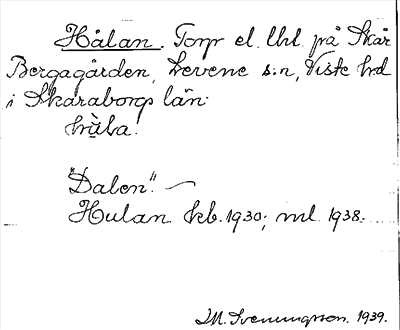 Hålan. Torp el. lht. på Skår
Bergagården, Levene s:n, Viste hd
i Skaraborgs län.
hùla.
"Dalen".
Hulan kb. 1930; ml 1938.
M. Sveningson. 1939.